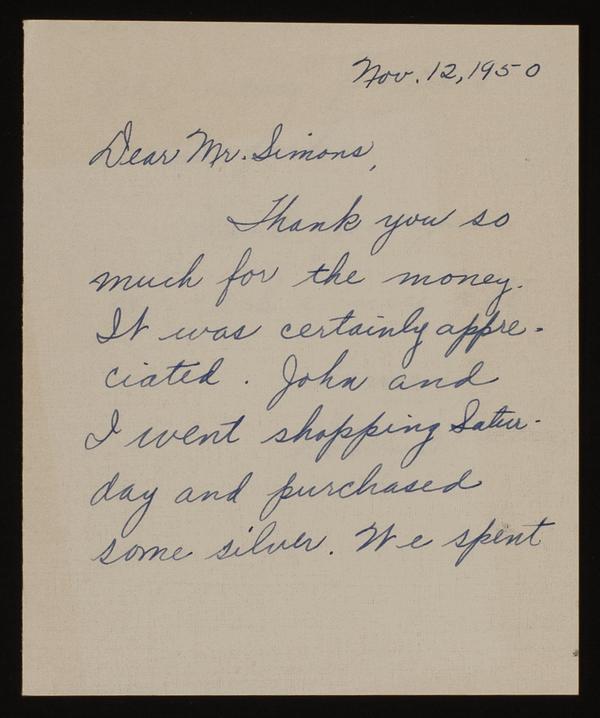 Nov. 12, 1950
Dear Mr. Simons,
Thank you so
much for the money.
It was certainly appre-
ciated. John and
I went shopping Satur-
day and purchased
some silver. We spent